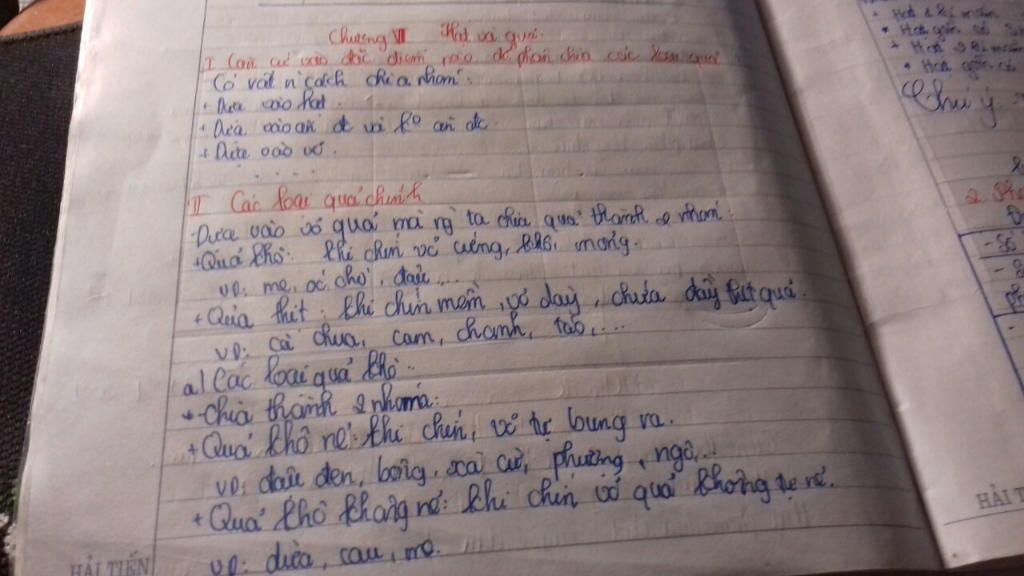 Chương VII Hạt và quả.
I Căn cứ vào đặc điểm nào để phân chia các loại quả
Có vất n' cách chia nhóm:
+ Dựa vào hạt.
+ Dựa vào ăn đc và ko ăn đc.
+ Dựa vào vỏ.
.....
II Các loại quả chính
Dựa vào vỏ quả mà ng ta chia quả thành 2 nhóm:
+ Quả khô: khi chín vỏ cứng, khô, mỏng.
VD: me, óc chó, đậu...
+ Quả thịt: khi chín mềm, vỏ dày, chứa đầy thịt quả.
VD: cà chua, cam, chanh, táo,...
a) Các loại quả khô.
* Chia thành 2 nhóm:
+ Quả khô nẻ: khi chín, vỏ tự bung ra.
VD: đậu đen, bông, cải, phượng, ngô,...
+ Quả khô không nẻ: khi chín vỏ quả không tự nẻ.
VD: dừa, cau, me.
HẢI TIẾN
Chú ý
2.
HẢI T